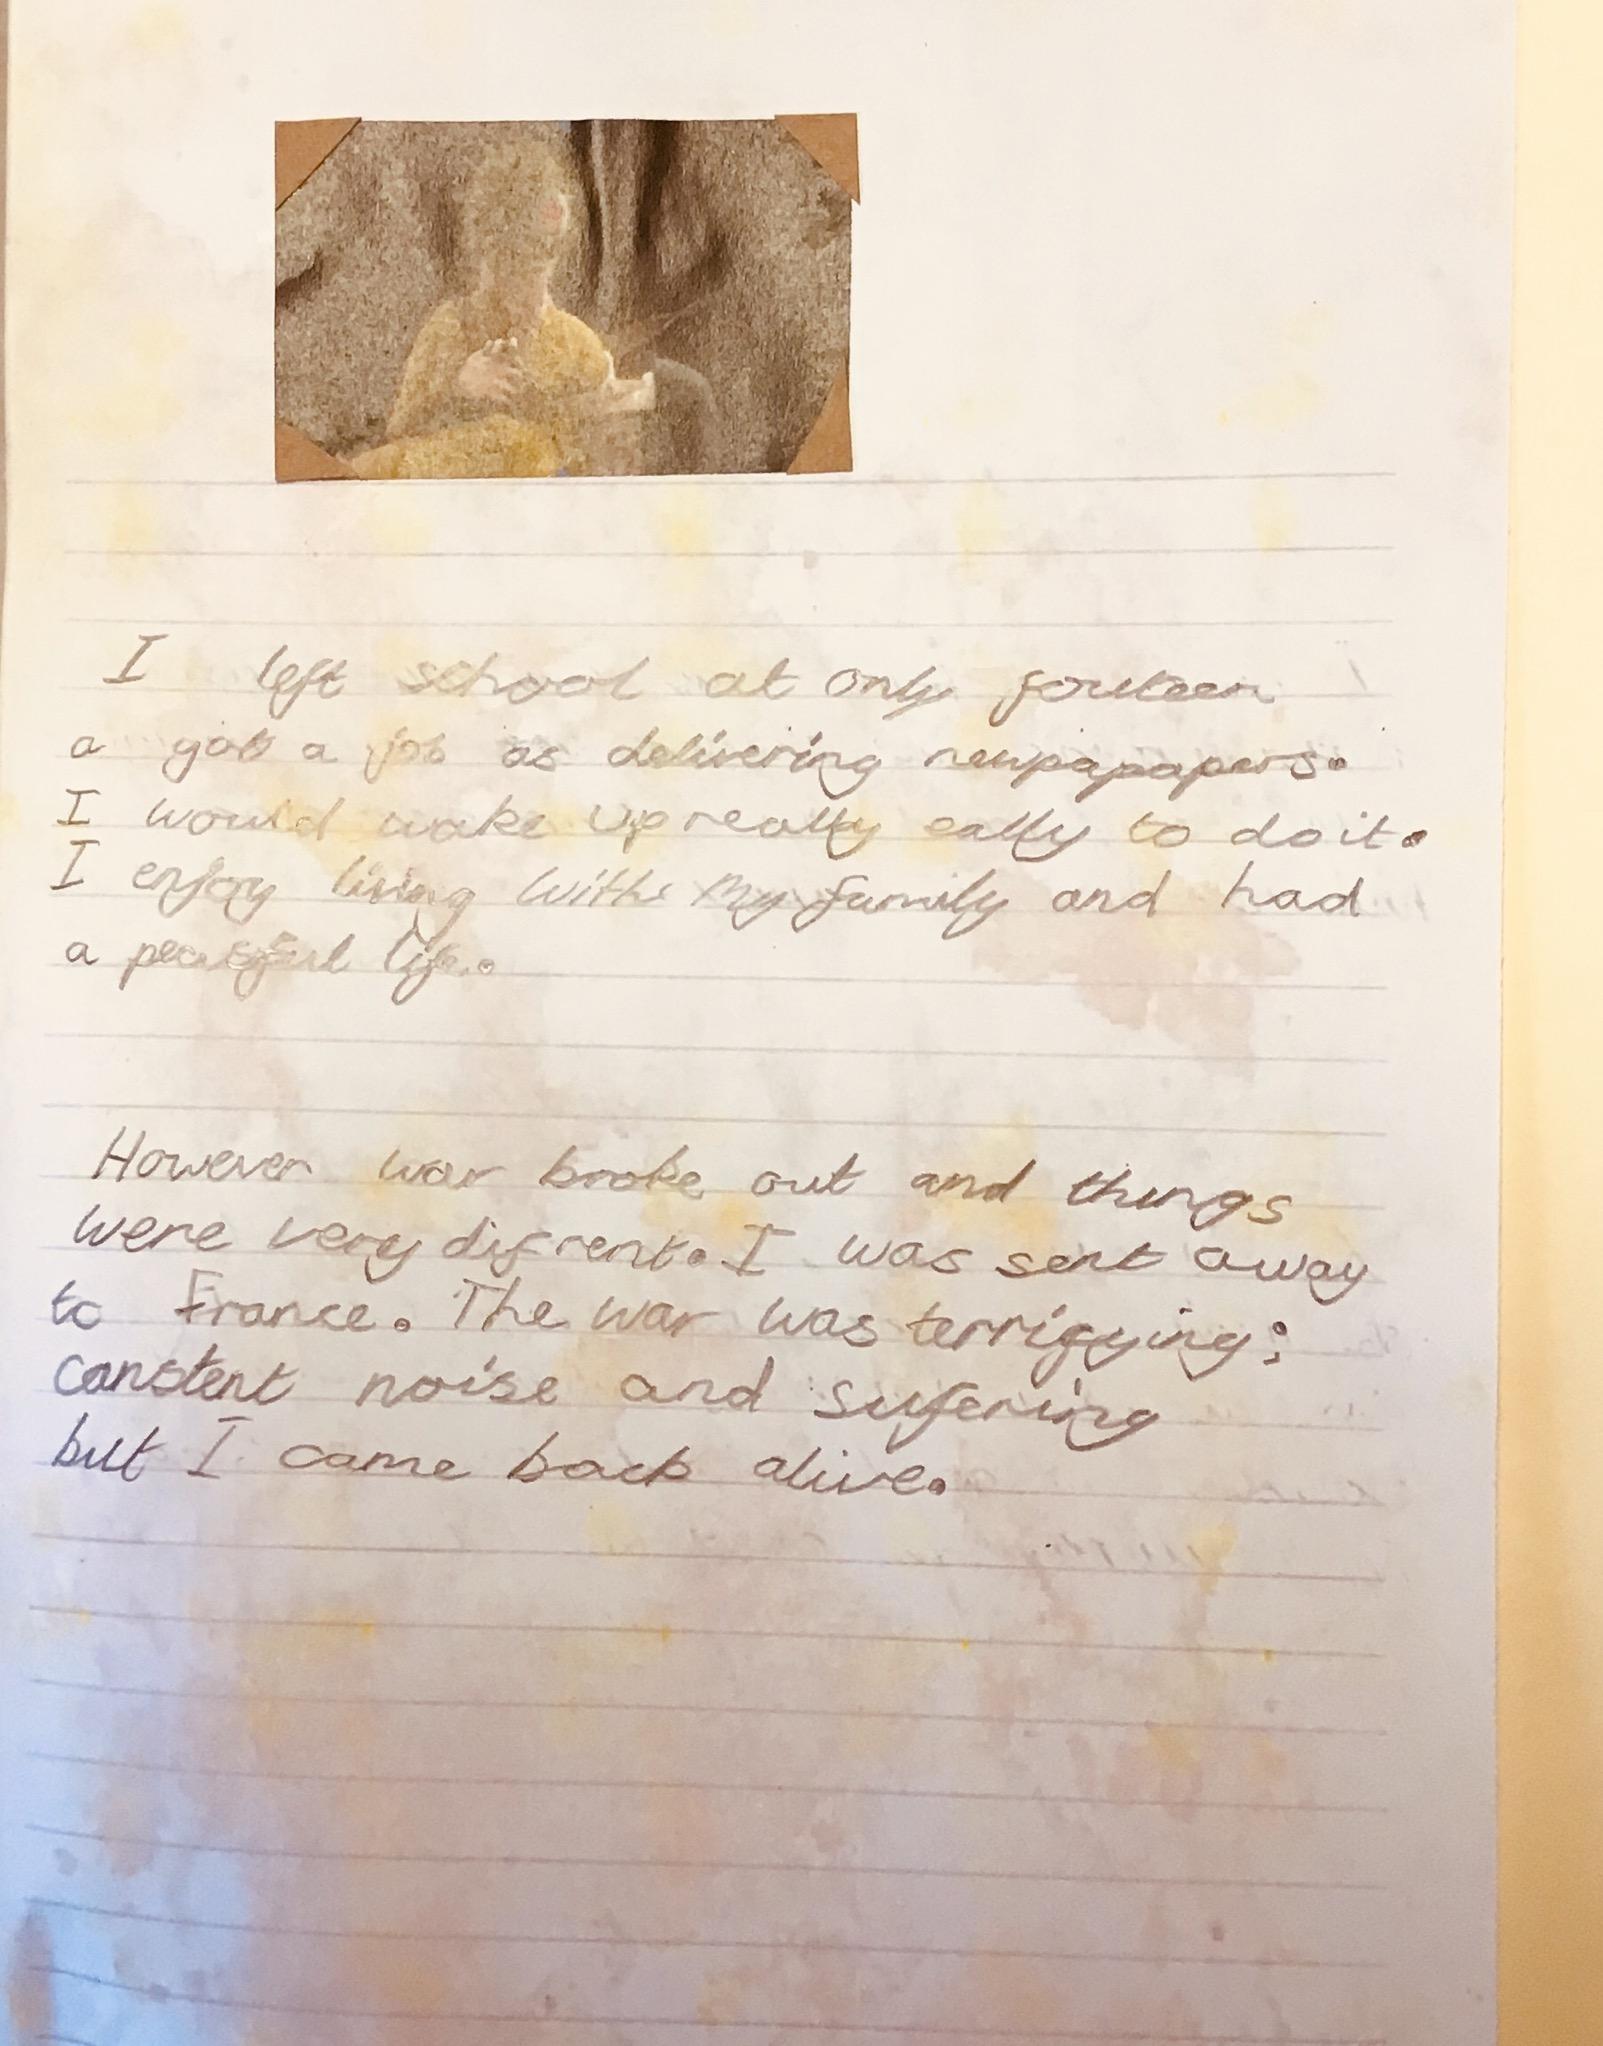 I left school at only fourteen
a got a job as delivering newpapapers.
I would wake up really eally to do it.
I enjoy living with my family and had
a peacsful life.
However war broke out and things
were very difrent. I was sent away
to France. The war was terrifying;
constent noise and sufering
but I came back alive.